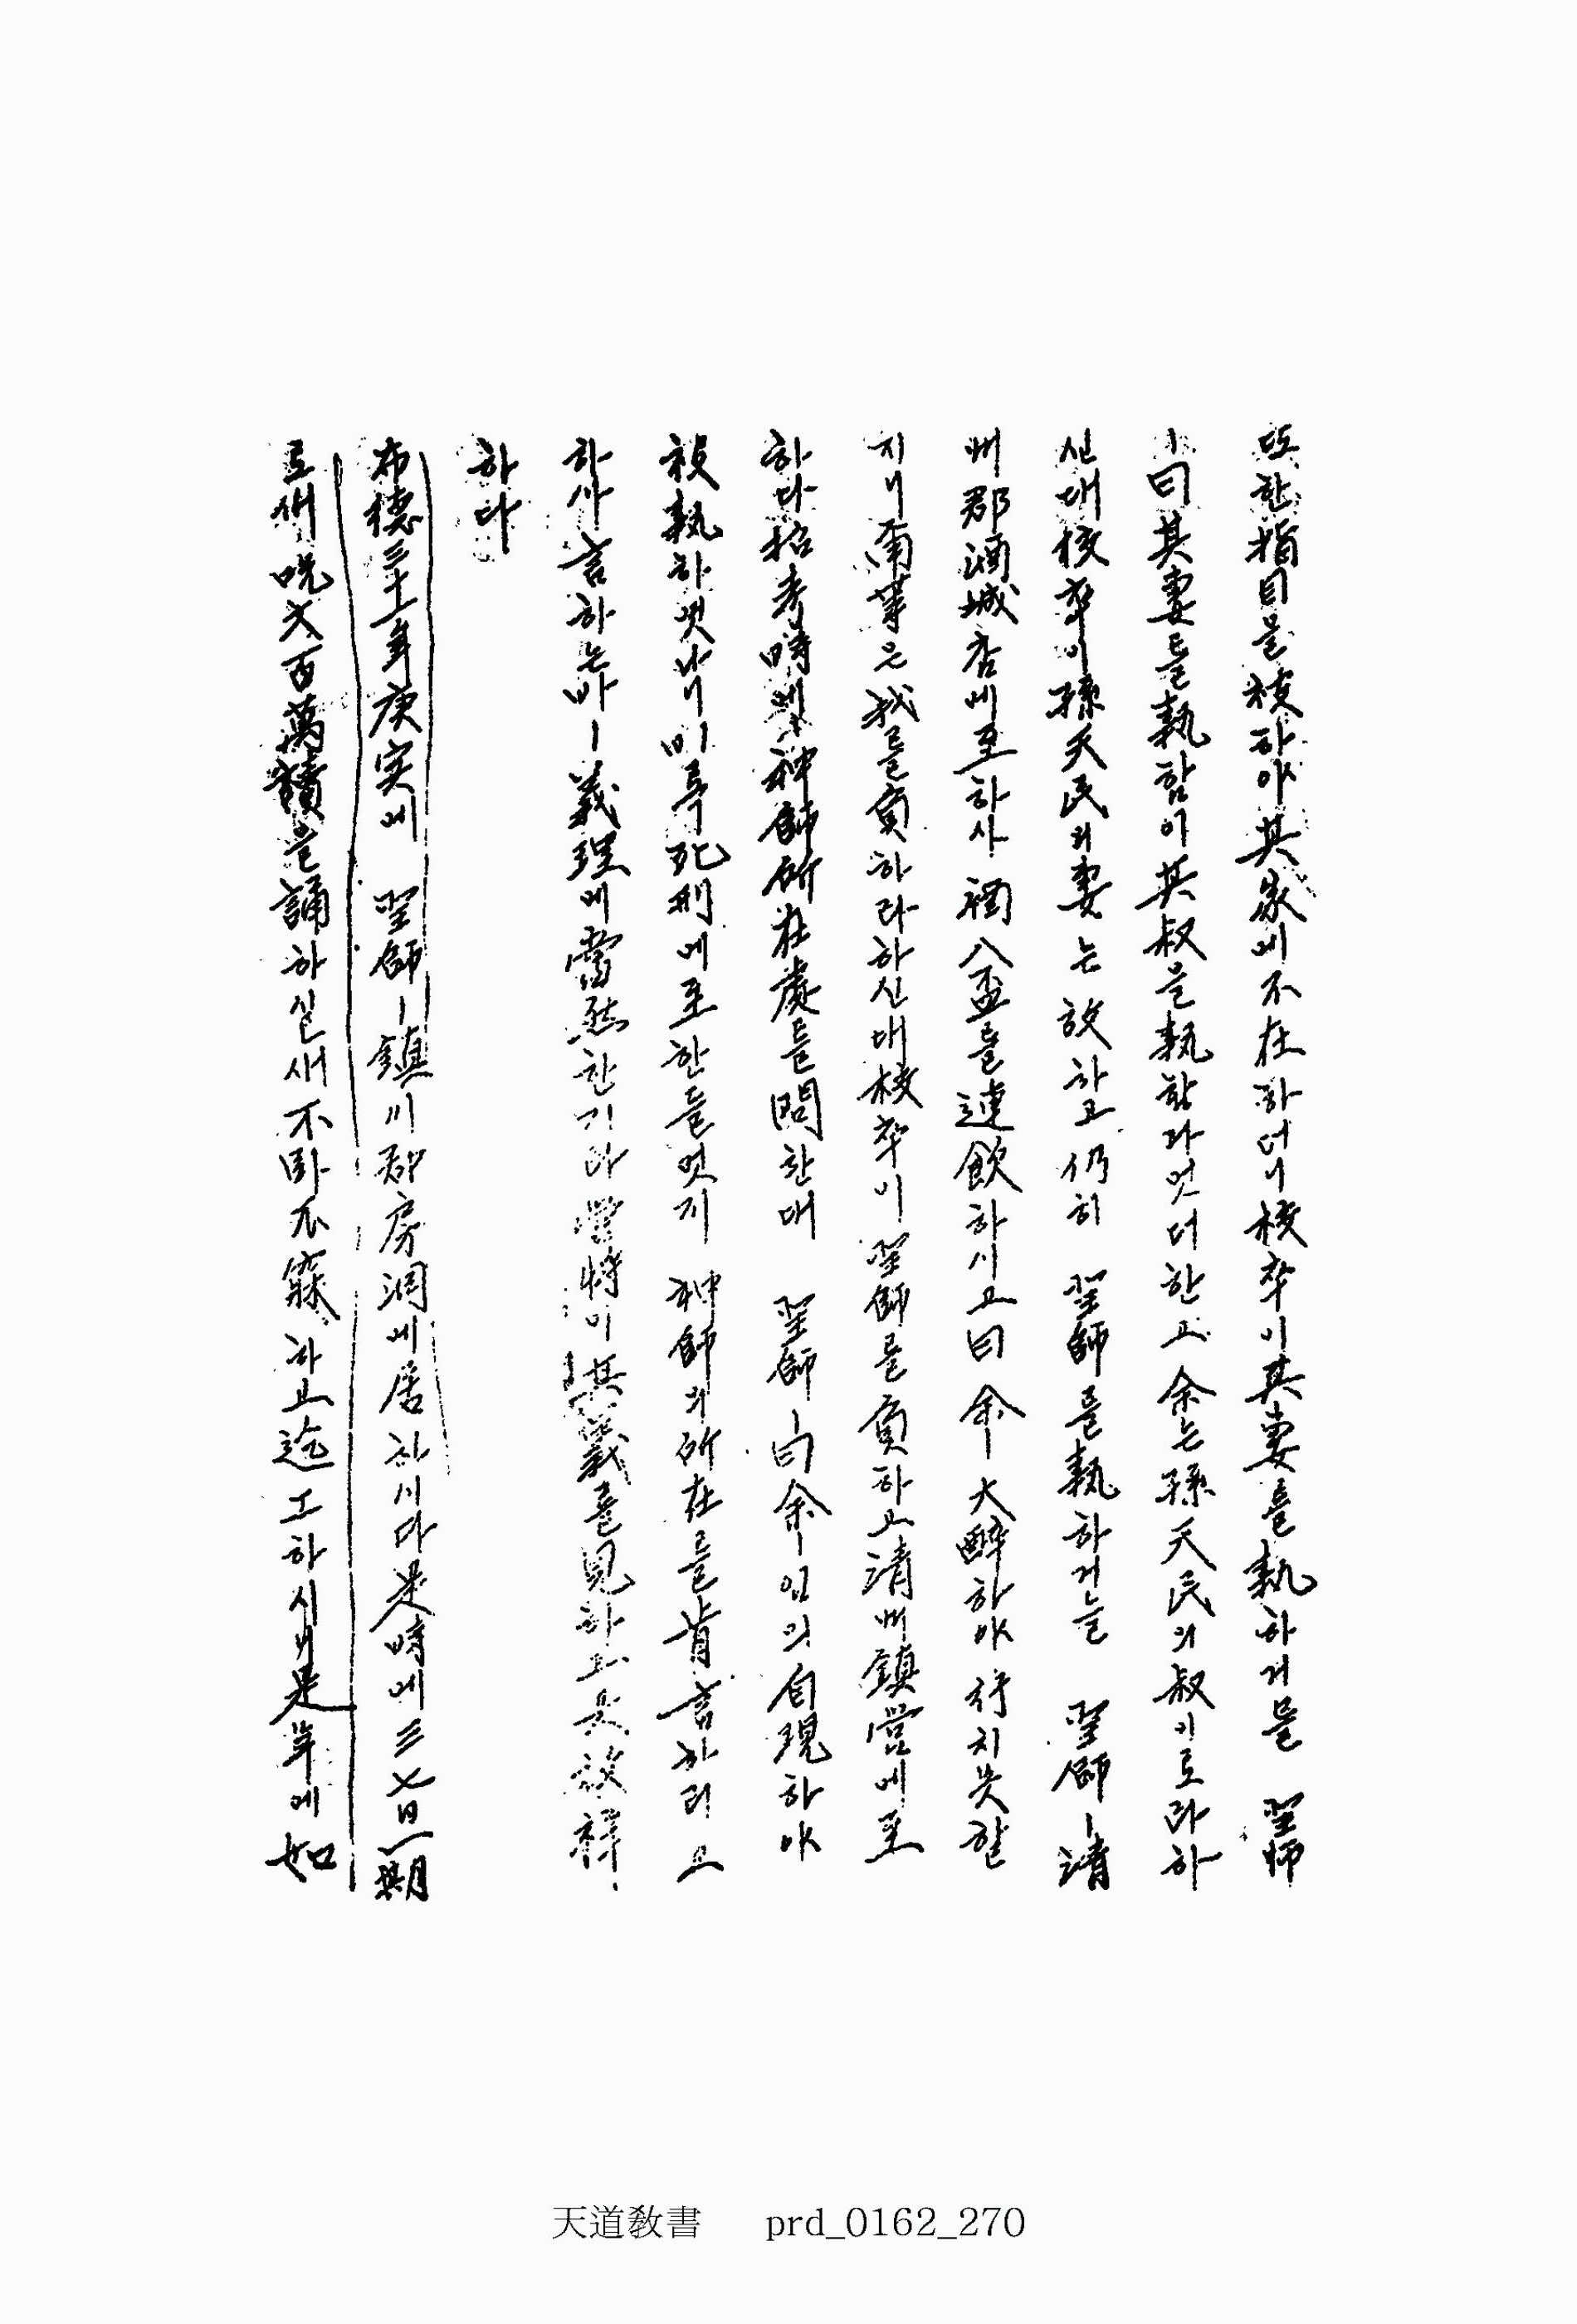 또한指目을被하야其家에不在하더니校卒이其妻를執하거늘 聖師
ㅣ曰其妻를執함이其叔을執함과엇더한고余는孫天民의叔이로라하
신대校卒이孫天民의妻는放하고仍히 聖師를執하거늘 聖師ㅣ淸
州郡酒城店에至하사 酒八盃를連飮하시고曰 余ㅣ大醉하야行치못할
지니爾等은我를負하라하신대校卒이 聖師를負하고淸州鎭營에至
하다招考時에神師所在處를問한대 聖師ㅣ曰余ㅣ임의自現하야
被執하엿나니비록死刑에至한들엇지 神師의所在를肯言하리고
하사言하는바ㅣ義理에當然한지라營將이其義를見하고放釋
하다
布德三十一年庚寅에 聖師ㅣ鎭川郡房洞에居하시다是時에三七日一期
로새呪文百萬讀을誦하실새不臥不寐하고迄工하시니是年에如